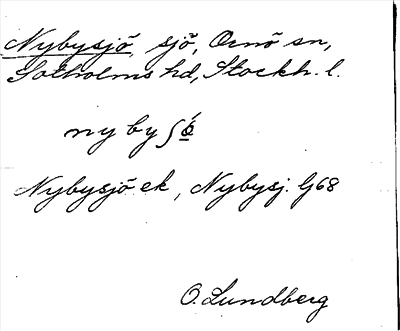 Nybysjö, sjö, Ornö sn,
Sotholms hd, Stockh. l.
nybyʃö́
Nybysjö ek, Nybysj. G68
O. Lundberg